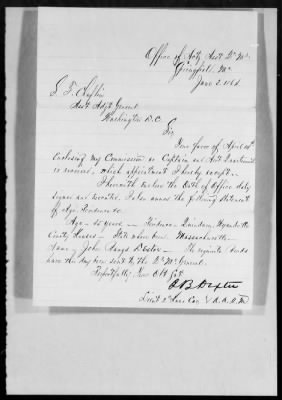 Office of Actg Asst Qr Mr
Springfield, Mo
June 2, 1864
Asst Adjt General
Washington D.C.
Sir
Your favor of April
Enclosing my Commission as Captain and Asst Quartermaster
is received, which appointment I hereby accept.
I herewith enclose the Oath of Office duly
signed and executed. I also annex the following statement
of Age, Residence &c
Age - years - Residence - Quindaro, Wyandotte
County Kansas - State where born Massachusetts
Name - John Dexter - The requisite bonds
have this day been sent to the Qr Mr General.
Respectfully, Your Obt Svt
Dexter
Lieut 2d Kans Cav & A.A.Q.M.